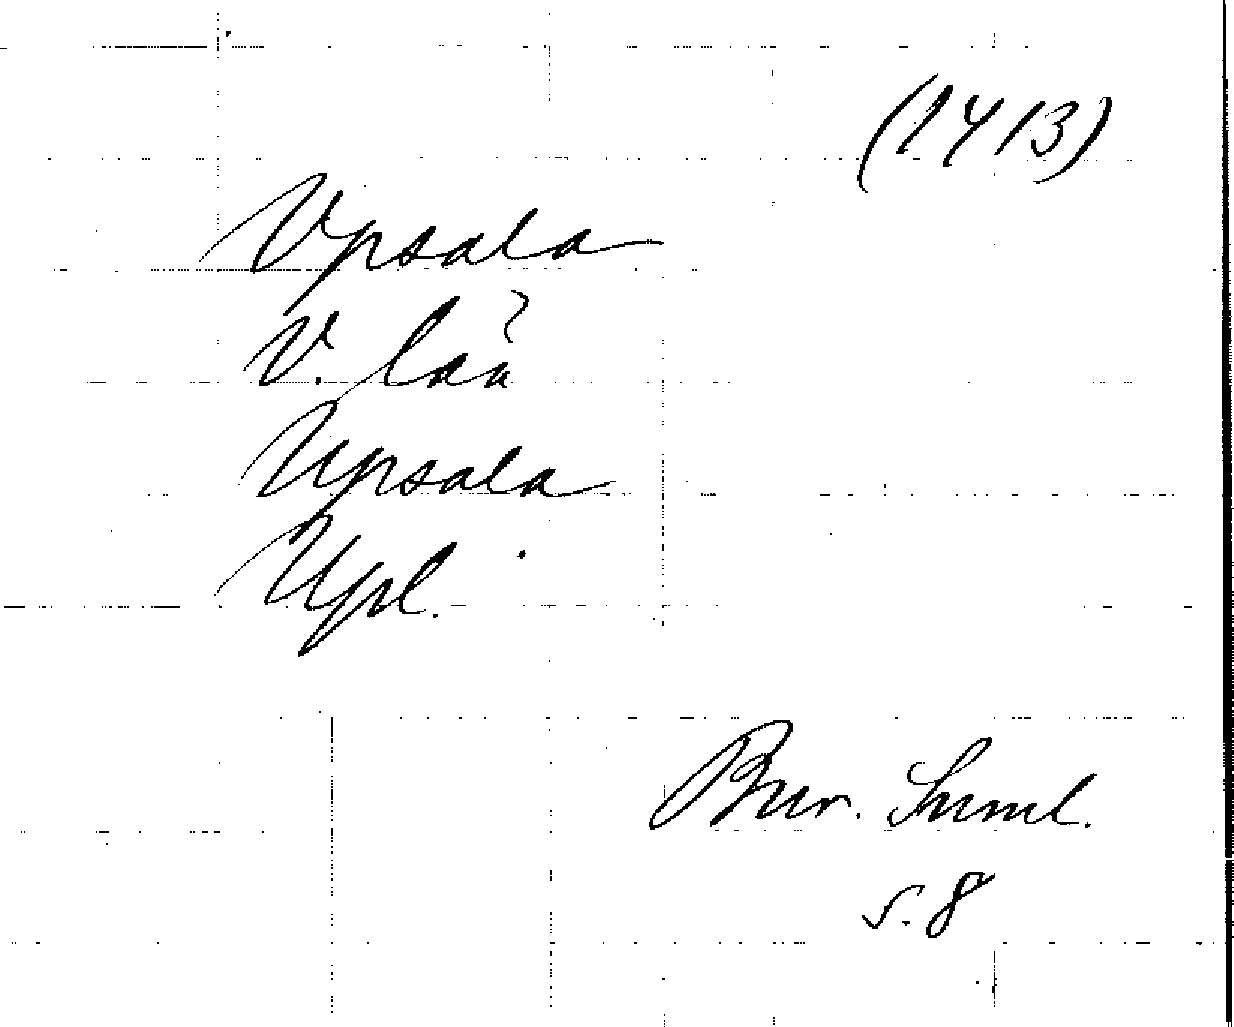 (1413)
Vpsala
V.
Upsala
Upl.
Bur. Suml.
s. 8